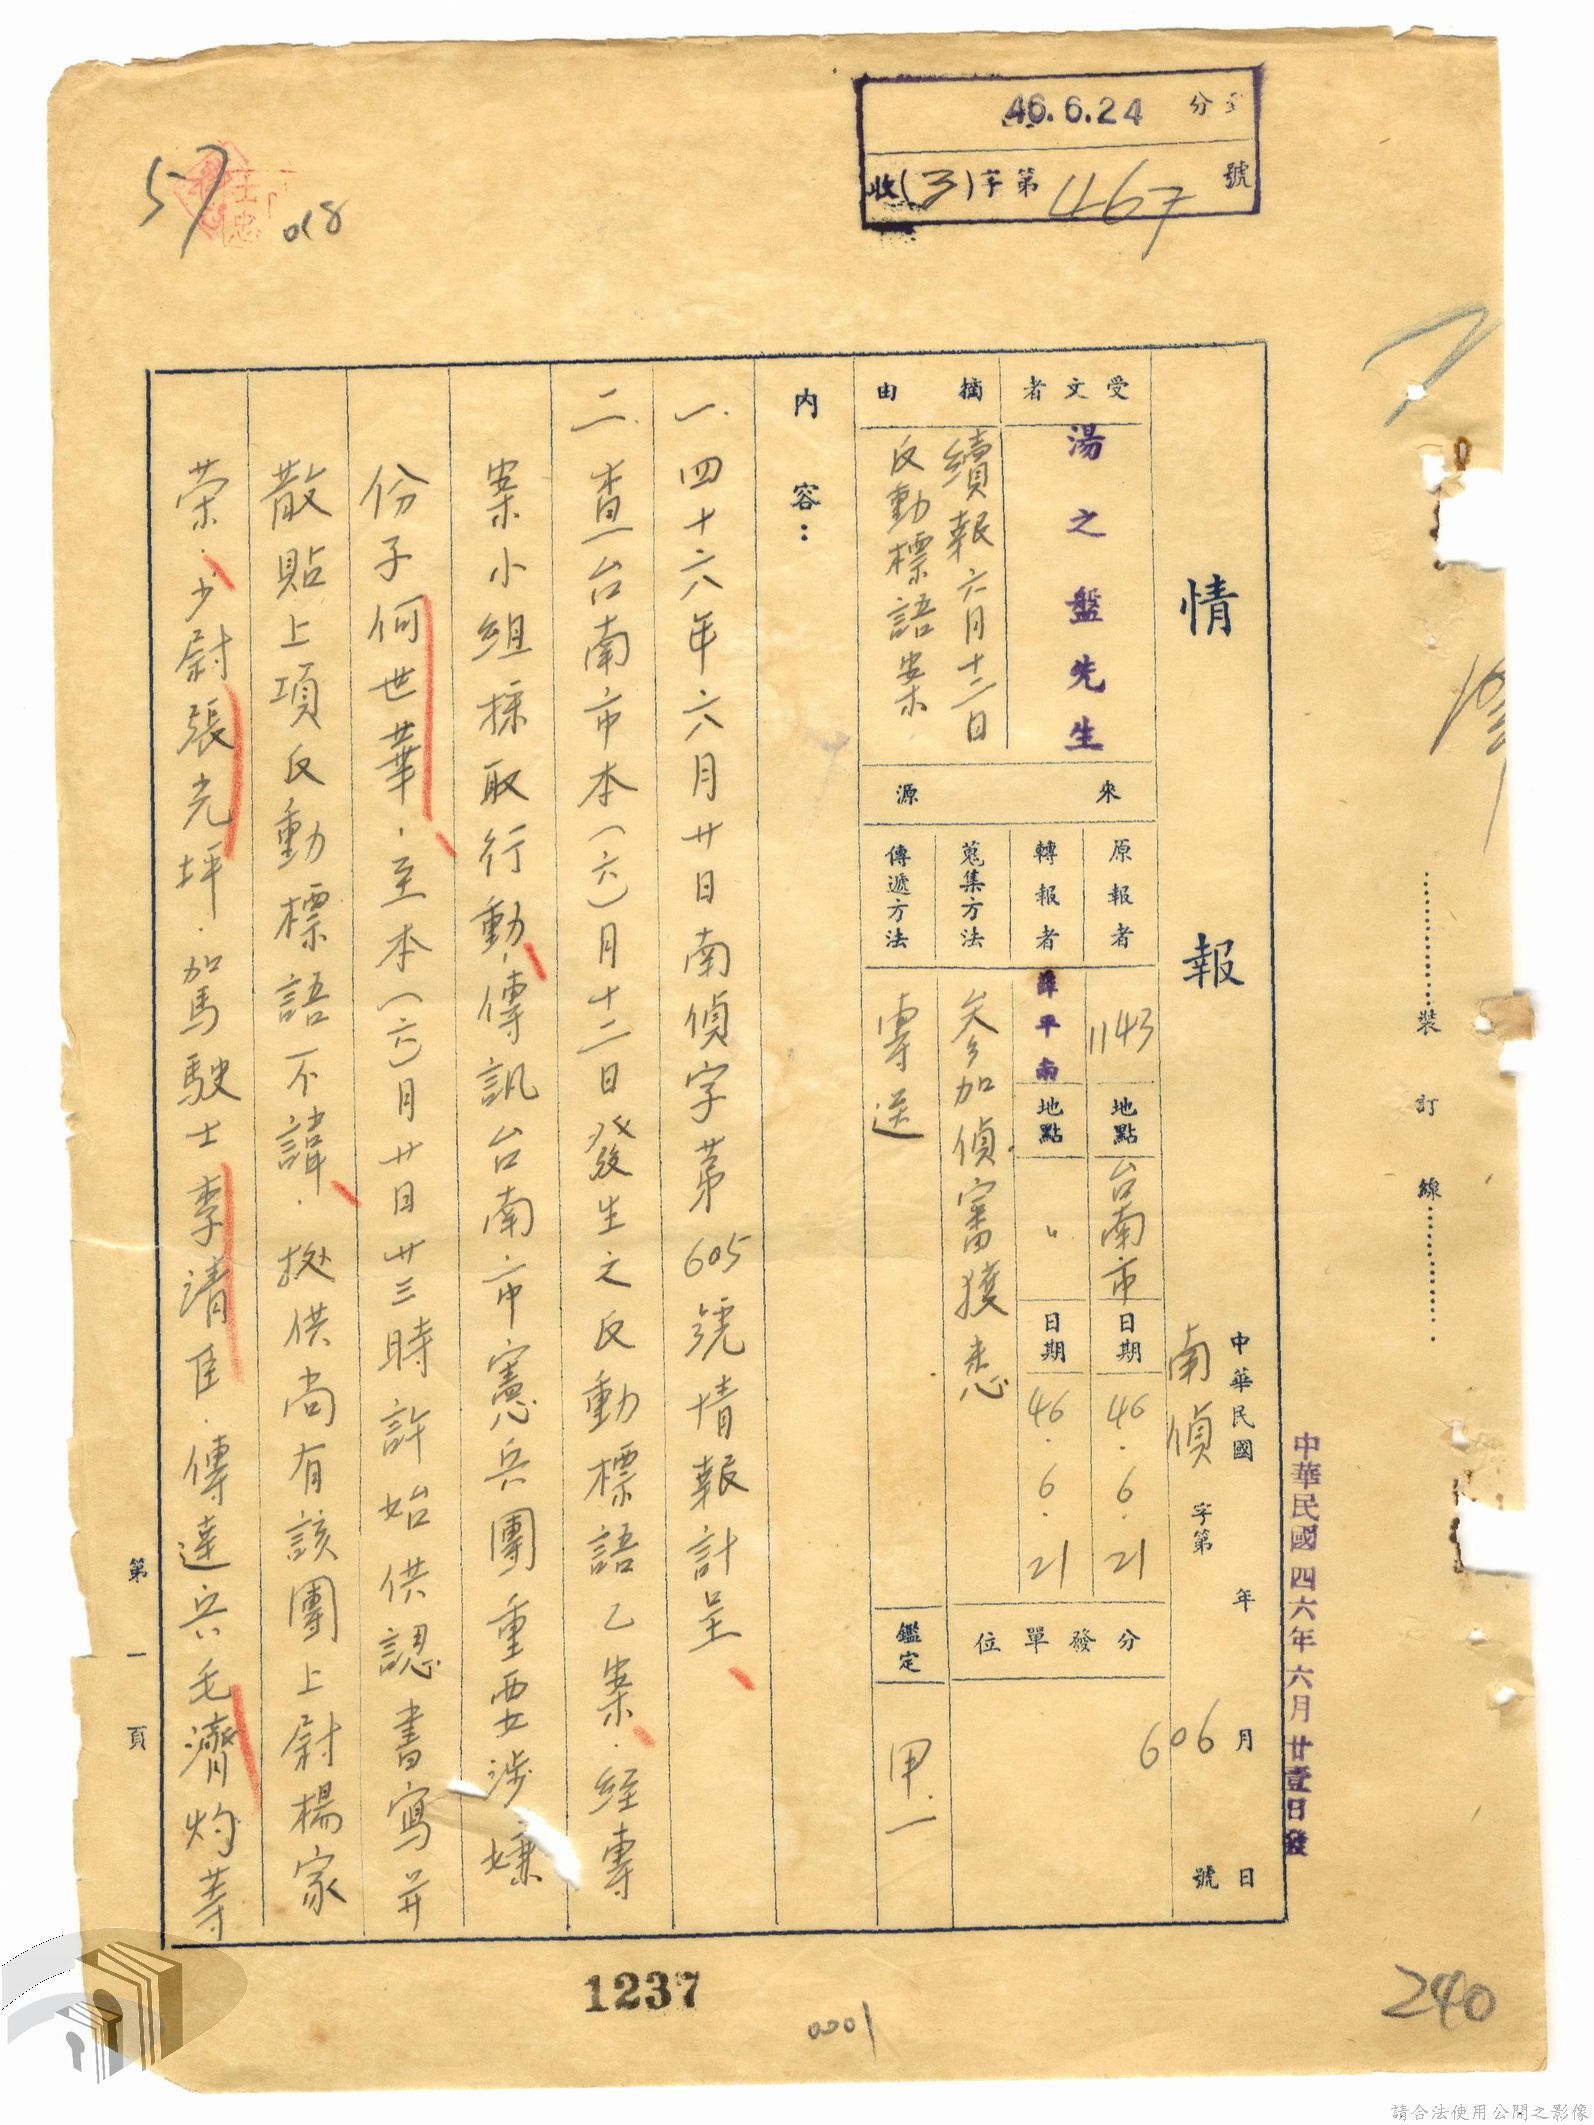 46.6.24
收(3)字第467號
57
018
240
裝訂線
中華民國四六年六月廿壹日發
中華民國 年 月 日
情報
南偵 字第 606 號
受文者
湯之盤先生
摘由
續報六月十二日
反動標語案
來源
原報者 1143 地點 台南市 日期 46.6.21
轉報者 薛平南 地點 〃 日期 46.6.21
蒐集方法 參加偵審獲悉
傳遞方法 專送
分發單位
鑑定 甲.一
內容:
一.四十六年六月廿日南偵字第605號情報計呈、
二.查台南市本(六)月十二日發生之反動標語乙案、經專
案小組採取行動、傳訊台南市憲兵團重要涉嫌
份子何世華、至本(六)月廿日廿三時許始供認書寫并
散貼上項反動標語不諱、據供尚有該團上尉楊家
荣、少尉張光坪、駕駛士李清臣、傳達兵毛濟灼等
第一頁
1237
0001
請合法使用公開之影像